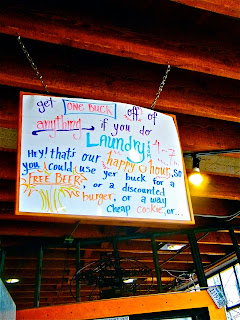 get ONE BUCK off of
anything if you do
Laundry from 4-7
Hey! that's our happy hour, so
you could use yer buck for a
FREE BEER, or a discounted
burger, or a way
cheap cookie, or...